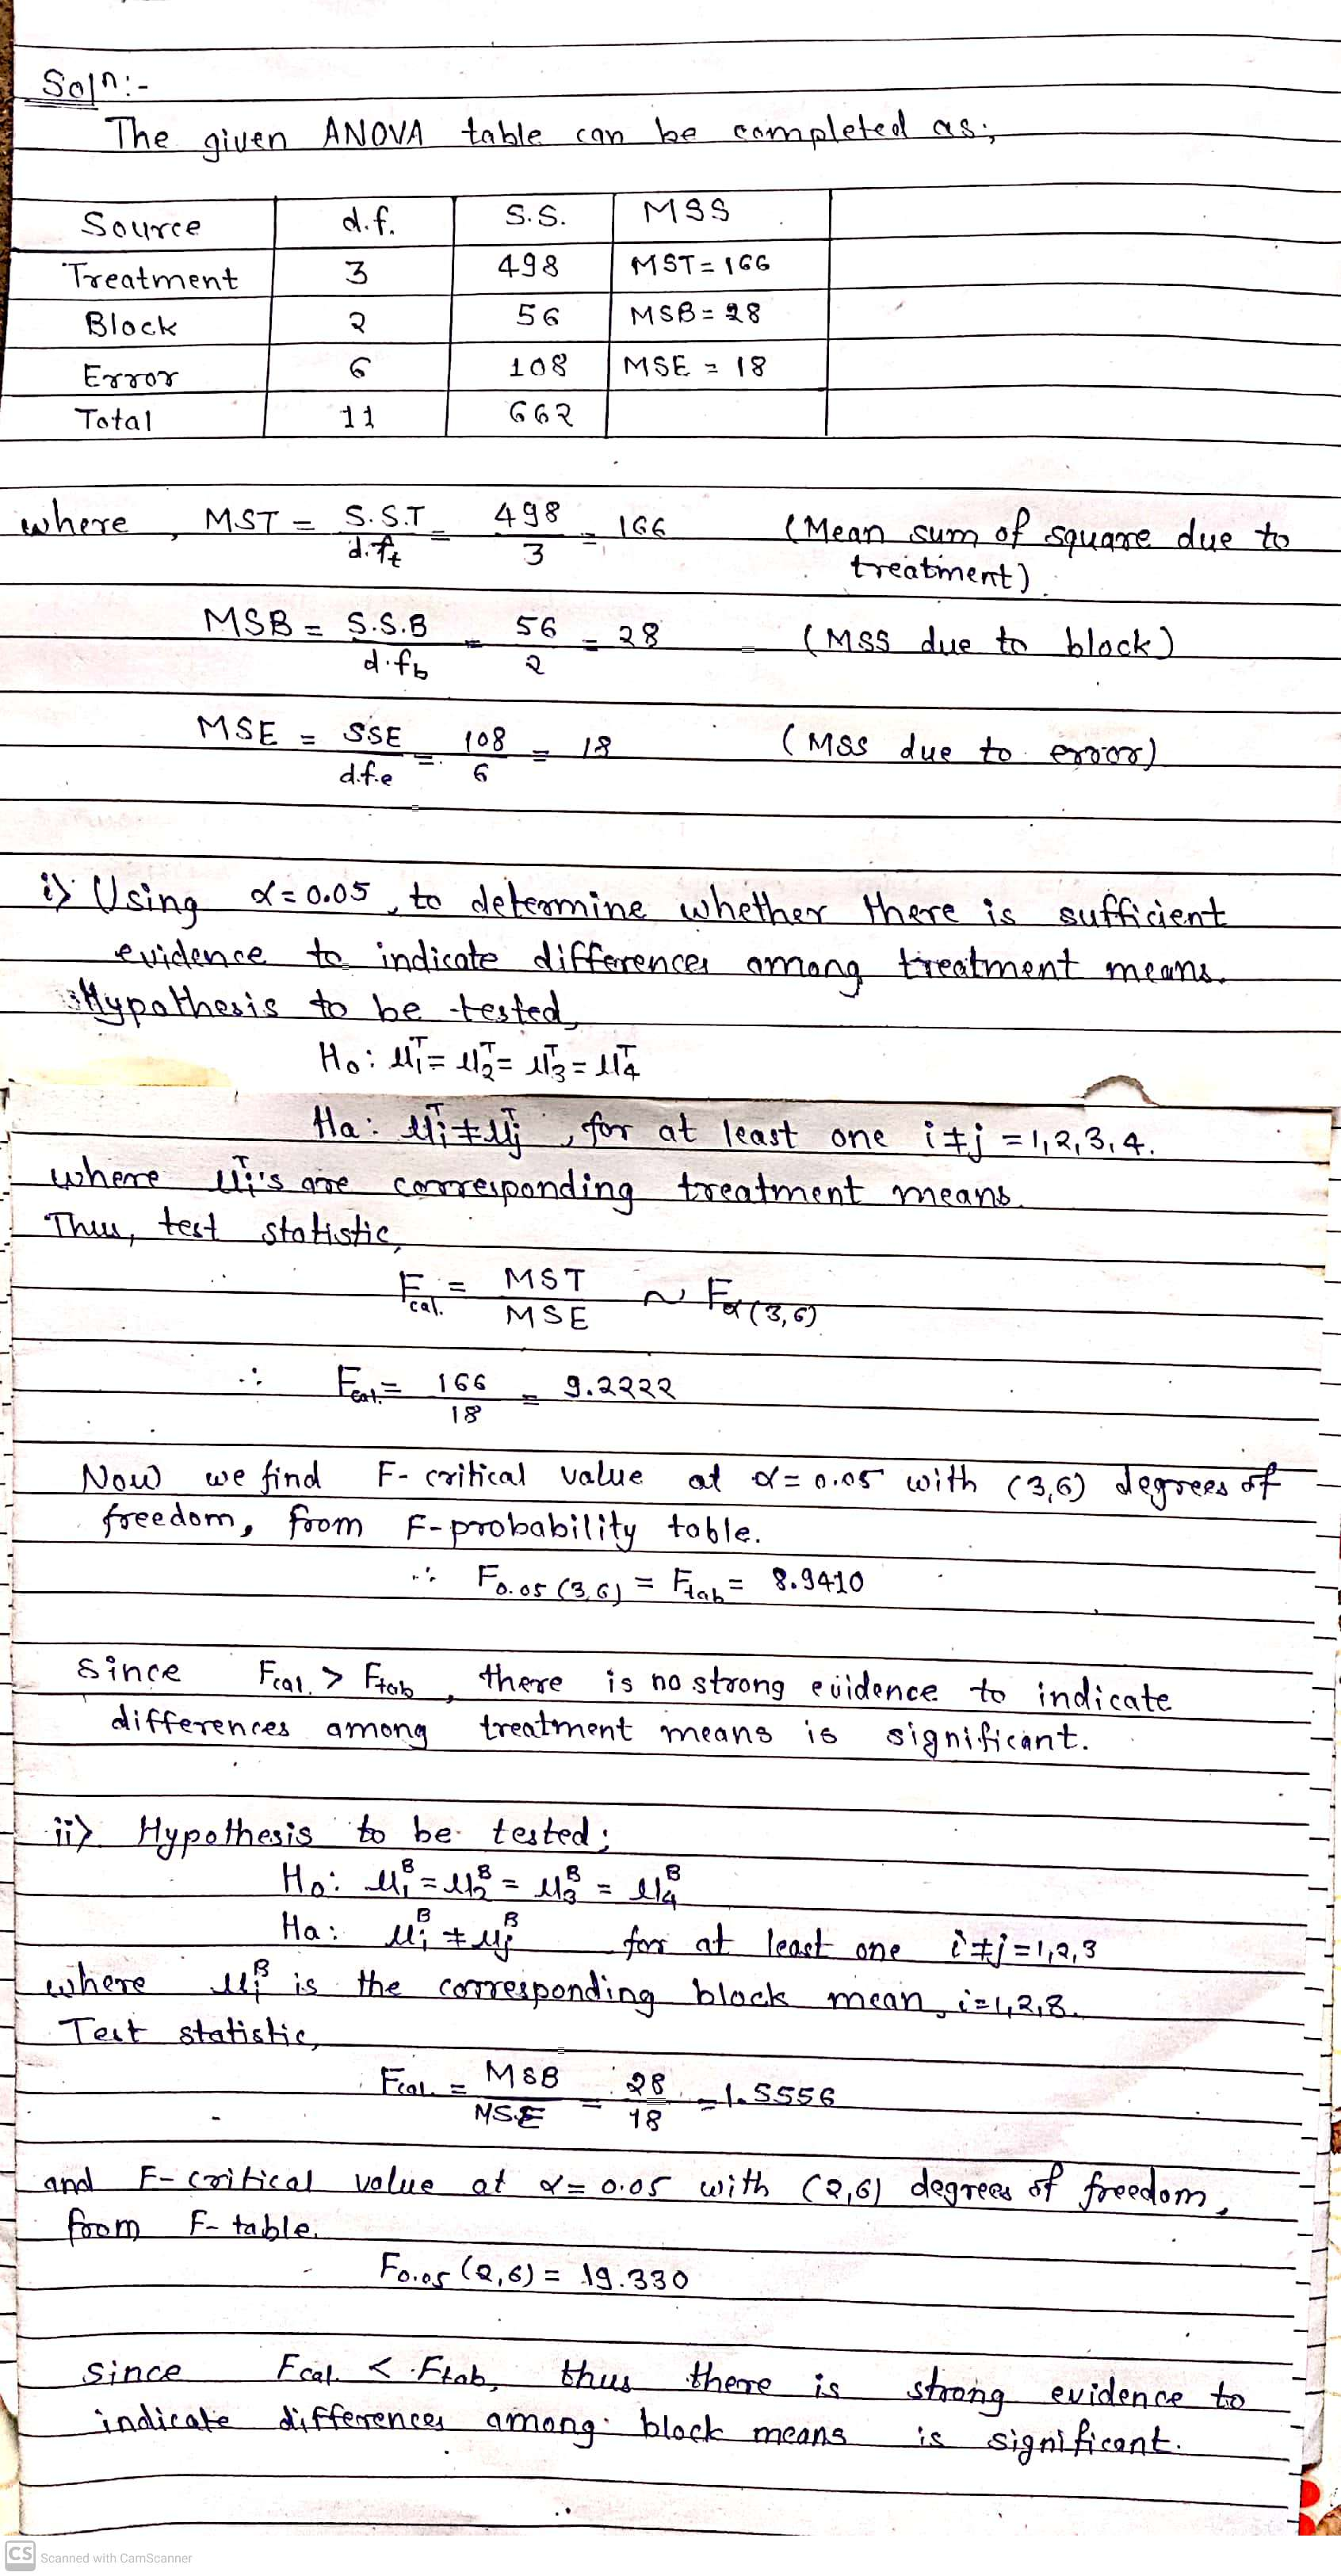 Soln:-
The given ANOVA table can be completed as;
Source d.f. S.S. MSS
Treatment 3 498 MST = 166
Block 2 56 MSB = 28
Error 6 108 MSE = 18
Total 11 662
where, MST = S.S.T / d.ft = 498 / 3 = 166 (Mean sum of square due to
treatment).
MSB = S.S.B / d.fb = 56 / 2 = 28 (MSS due to block)
MSE = SSE / d.f.e = 108 / 6 = 18 (MSS due to error)
i) Using α = 0.05, to determine whether there is sufficient
evidence to indicate differences among treatment means.
Hypothesis to be tested,
H0: μ1^T = μ2^T = μ3^T = μ4^T
Ha: μi^T ≠ μj^T, for at least one i ≠ j = 1,2,3,4.
where μi^T's are corresponding treatment means.
Thus, test statistic,
Fcal. = MST / MSE ~ Fα(3,6)
∴ Fcal. = 166 / 18 = 9.2222
Now we find F- critical value at α = 0.05 with (3,6) degrees of
freedom, from F-probability table.
∴ F0.05(3,6) = Ftab = 8.9410
since Fcal. > Ftab, there is no strong evidence to indicate
differences among treatment means is significant.
ii) Hypothesis to be tested;
H0: μ1^B = μ2^B = μ3^B = μ4^B
Ha: μi^B ≠ μj^B for at least one i ≠ j = 1,2,3
where μi^B is the corresponding block mean, i = 1,2,3.
Test statistic,
Fcal. = MSB / MSE = 28 / 18 = 1.5556
and F- critical value at α = 0.05 with (2,6) degrees of freedom,
from F- table.
F0.05 (2,6) = 19.330
since Fcal. < Ftab, thus there is strong evidence to
indicate differences among block means is significant.
CS Scanned with CamScanner